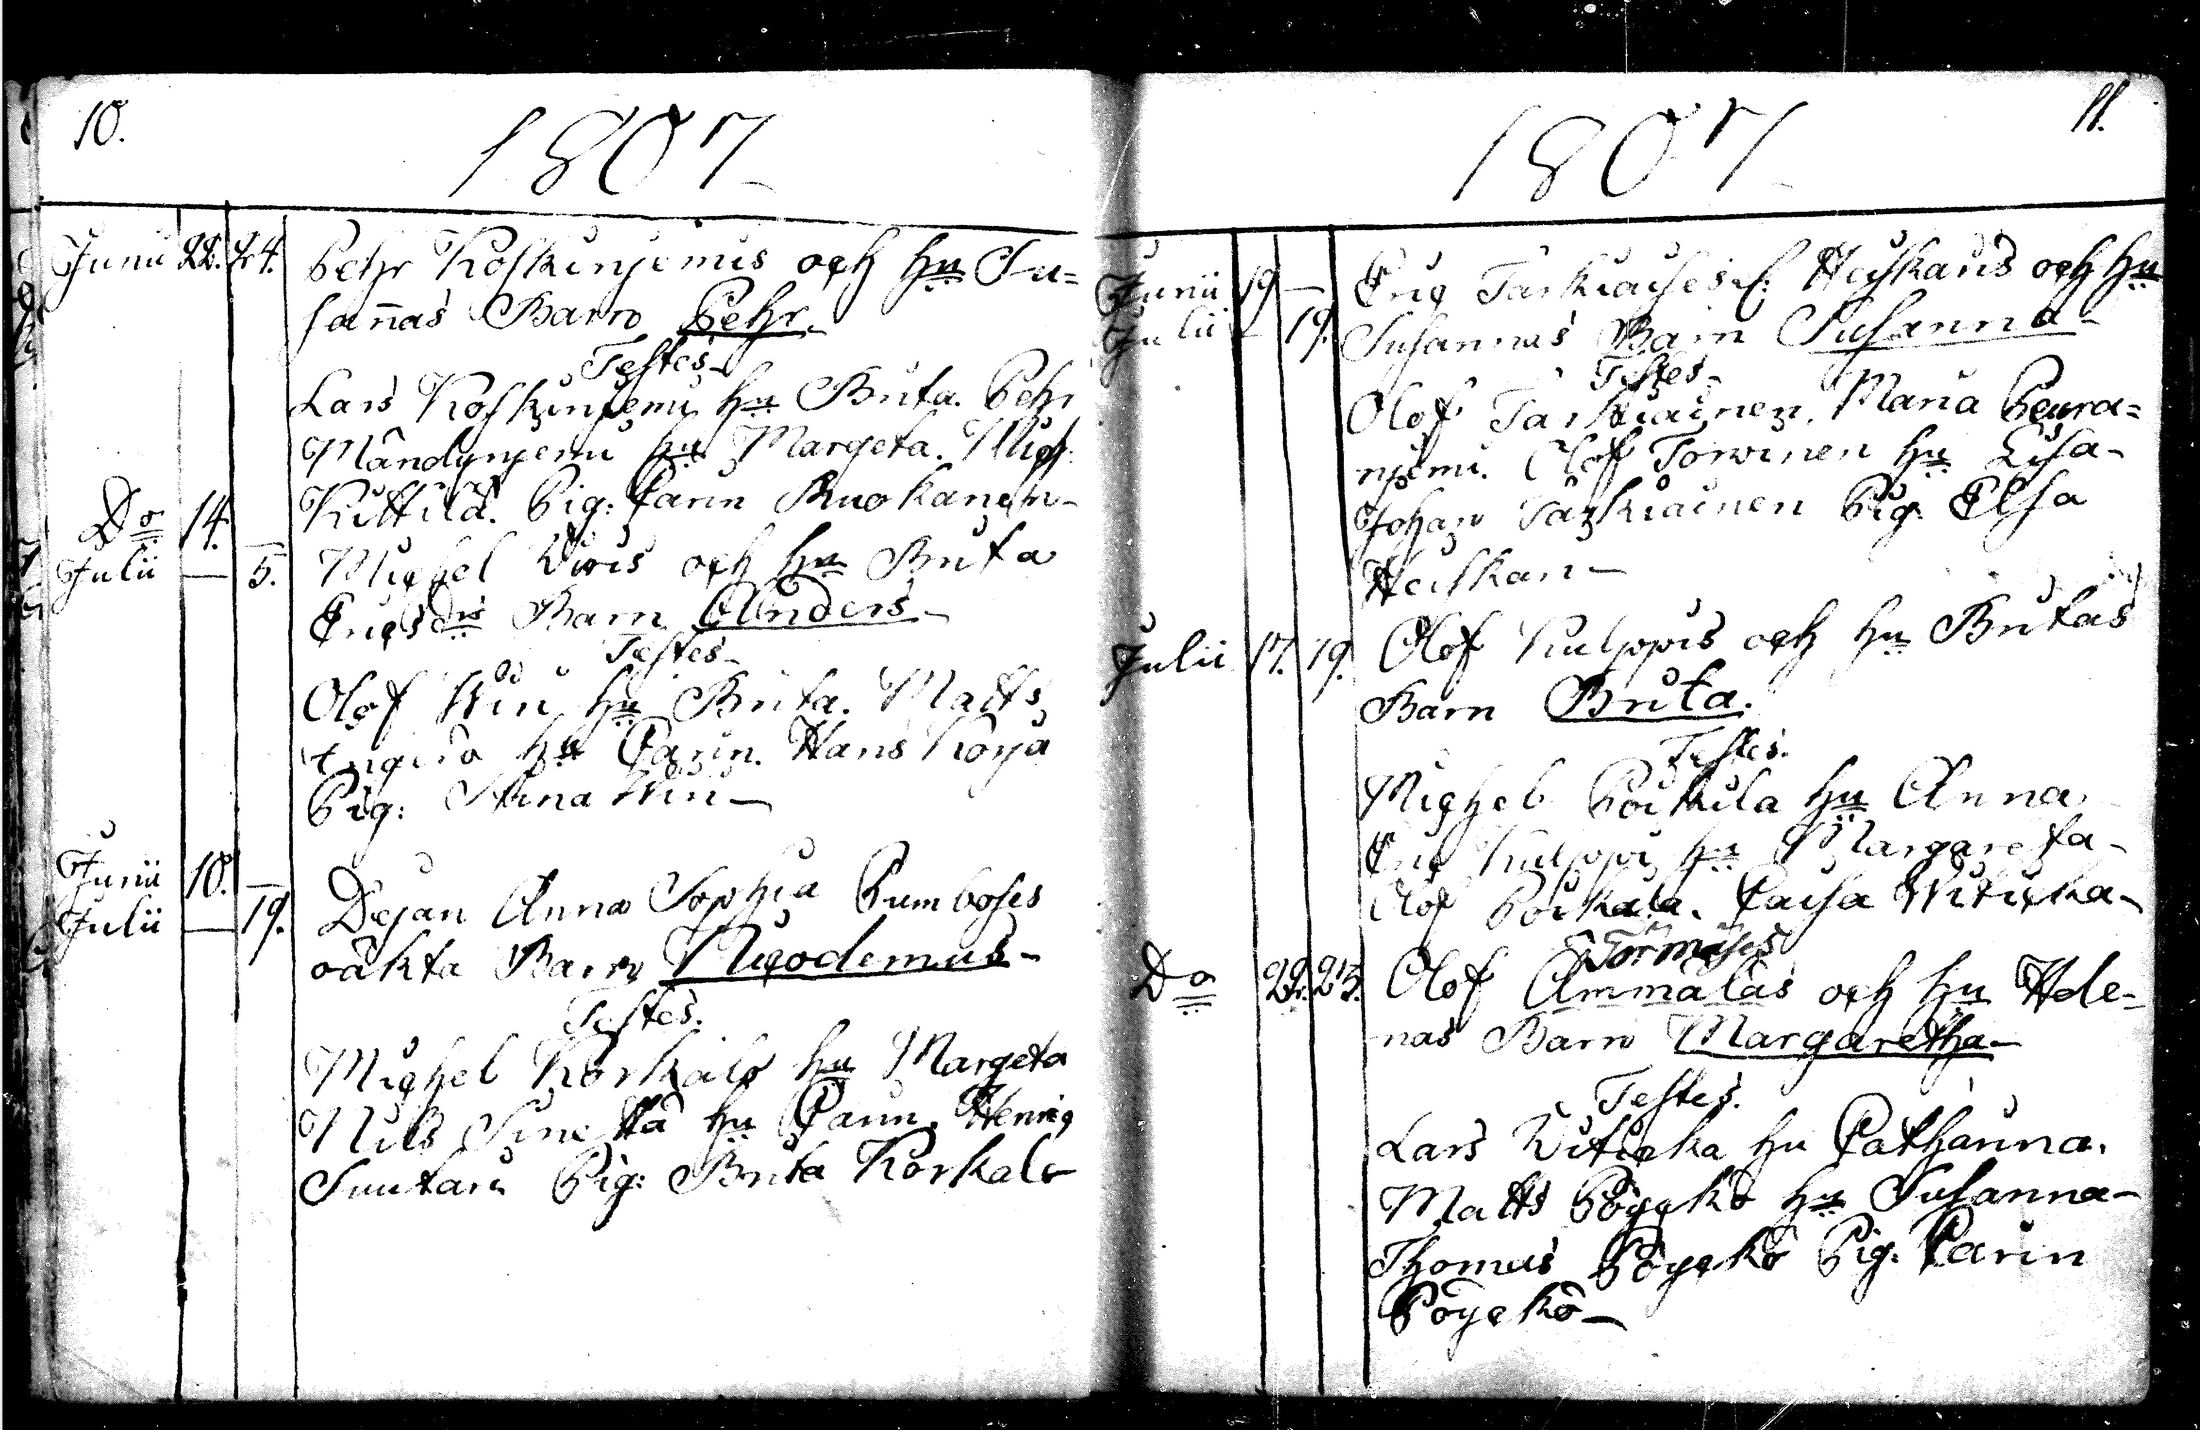 10.
1807
Junii 22. 24. Pehr Koskinjemis och Hu Su=
sannas Barn Pehr.
Testes
Lars Koskinjemi Hu Brita. Pehr
Mändynjemi Hu Margeta. Mich:
Kittilä. Pig: Carin Ruokanen
Do 14. —
Julii — 5. Michel Wiris och Hu Brita
Ericsdrs Barn Anders
Testes
Olof Wiri Hu Brita. Matts
Hu Carin. Hans Korja
Pig: Stina Wiri
Junii 10. —
Julii — 19. Dejan Anna Sophia Rumboses
oäkta Barn Nicodemus
Testes.
Michel Korkalo Hu Margeta
Nils Sinettä Hu Carin. Henric
Suutari Pig: Brita Korkalo
11.
1807
Junii 19 —
Julii — 19. Eric Tarkiaises f: Heiskaris och Hu
Susannas Barn Susanna
Testes
Olof Tarkiainen. Maria Peura=
njemi. Olof Torvinen Hu Lisa
Johan Tarkiainen Pig: Elsa
Heiskari
Julii 17. 19. Olof Kulppis och Hu Britas
Barn Brita.
Testes.
Michel Poikila Hu Anna
Eric Kulppi Hu Margareta
Olof Poikela. Caisa Witicka
Törmäses
Do 22. 25. Olof Ammalas och Hu Hele-
nas Barn Margaretha
Testes.
Lars Witicka Hu Catharina.
Matts Pöyckö Hu Susanna
Thomas Pöyckö Pig: Carin
Pöyckö